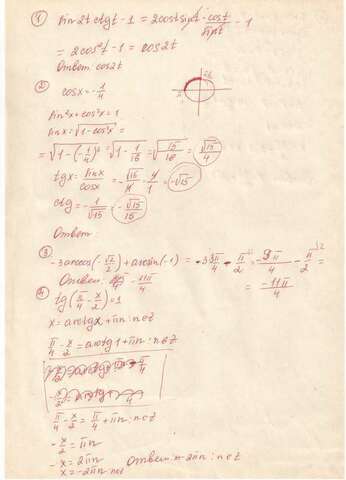 ① sin2t ctgt - 1 = 2cost sint · cost/sint - 1
= 2cos²t - 1 = cos2t
Ответ: cos2t
② cosx = -1/4
sin²x + cos²x = 1
sinx = √1-cos²x =
= √1-(-1/4)² = √1-1/16 = √15/16 = √15/4
tgx = sinx/cosx = -√15/4 · 4/1 = -√15
ctg = -1/√15 = -√15/15
Ответ:
③ -3arccos(-√2/2) + arcsin(-1) = -3·3π/4 - π/2 = -9π/4 - π/2 =
Ответ: -11π/4 = -11π/4
④ tg(π/4 - x/2) = 1
x = arctgx + πn: n∈Z
π/4 - x/2 = arctg1 + πn: n∈Z
π/4 - x/2 = π/4 + πn: n∈Z
-x/2 = πn
-x = 2πn Ответ: -2πn: n∈Z
x = -2πn: n∈Z